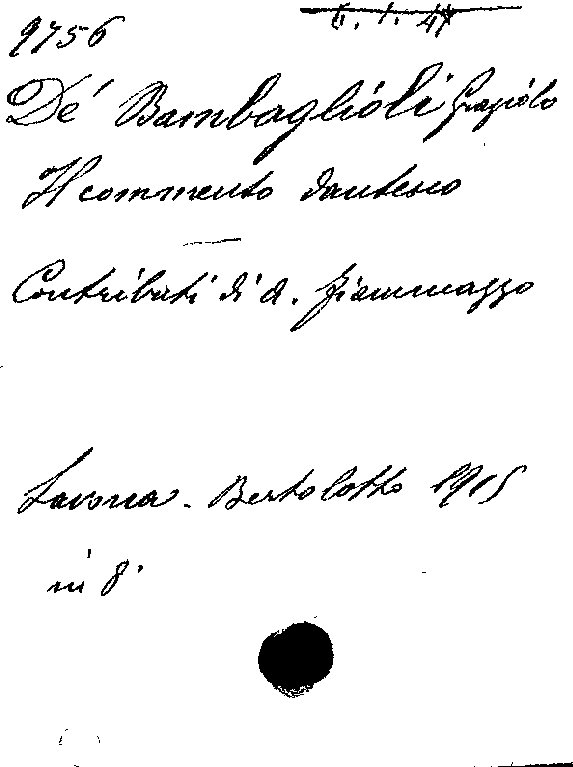 9756
De' Bambaglioli Graziolo
Il commento dantesco
Contributi di A. Fiammazzo
Savona - Bertolotto 1915
in 8°